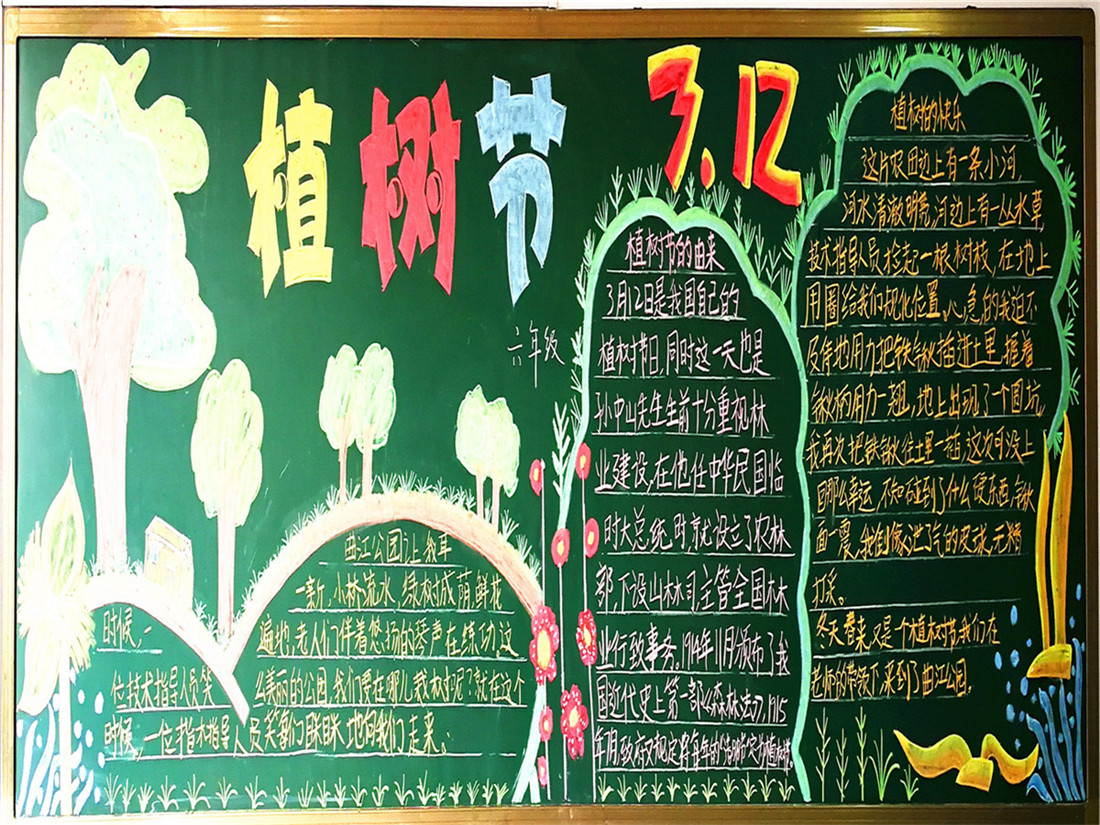 植树节
3.12
六年级
植树的快乐
这片农田边上有一条小河,
河水清澈明亮,河边上有一丛水草,
技术指导人员捡起一根树枝,在地上
用圈给我们规化位置,心急的我迫不
及待地用力把铁锹插进土里,握着
锹柄用力一翘,地上出现了一个圆坑,
我再次把铁锹往土里一插,这次可没上
回那么幸运,不知碰到了什么硬东西,锹
面一震,我倒像泄气的皮球,无精
打采。
冬天春来,又是一个植树节,我们在
老师的带领下来到了曲江公园。
植树节的由来
3月12日是我国自己的
植树节日,同时这一天也是
孙中山先生生前十分重视林
业建设,在他任中华民国临
时大总统时,就设立了农林
部,下设山林司,主管全国林
业行政事务,1914年11月颁布了我
国近代史上第一部《森林法》,1915
年7月,政府又规定将每年的"清明"定为植树节。
曲江公园门上我耳
一亲斤,小桥流水,绿树成荫,鲜花
遍地,老人们伴着悠扬的琴声在练功,这
么美丽的公园,我们要在哪儿栽树呢?就在这个
时候,一
位技术指导人员笑
时候,一位指术指导人员笑
眯眯地向我们走来。